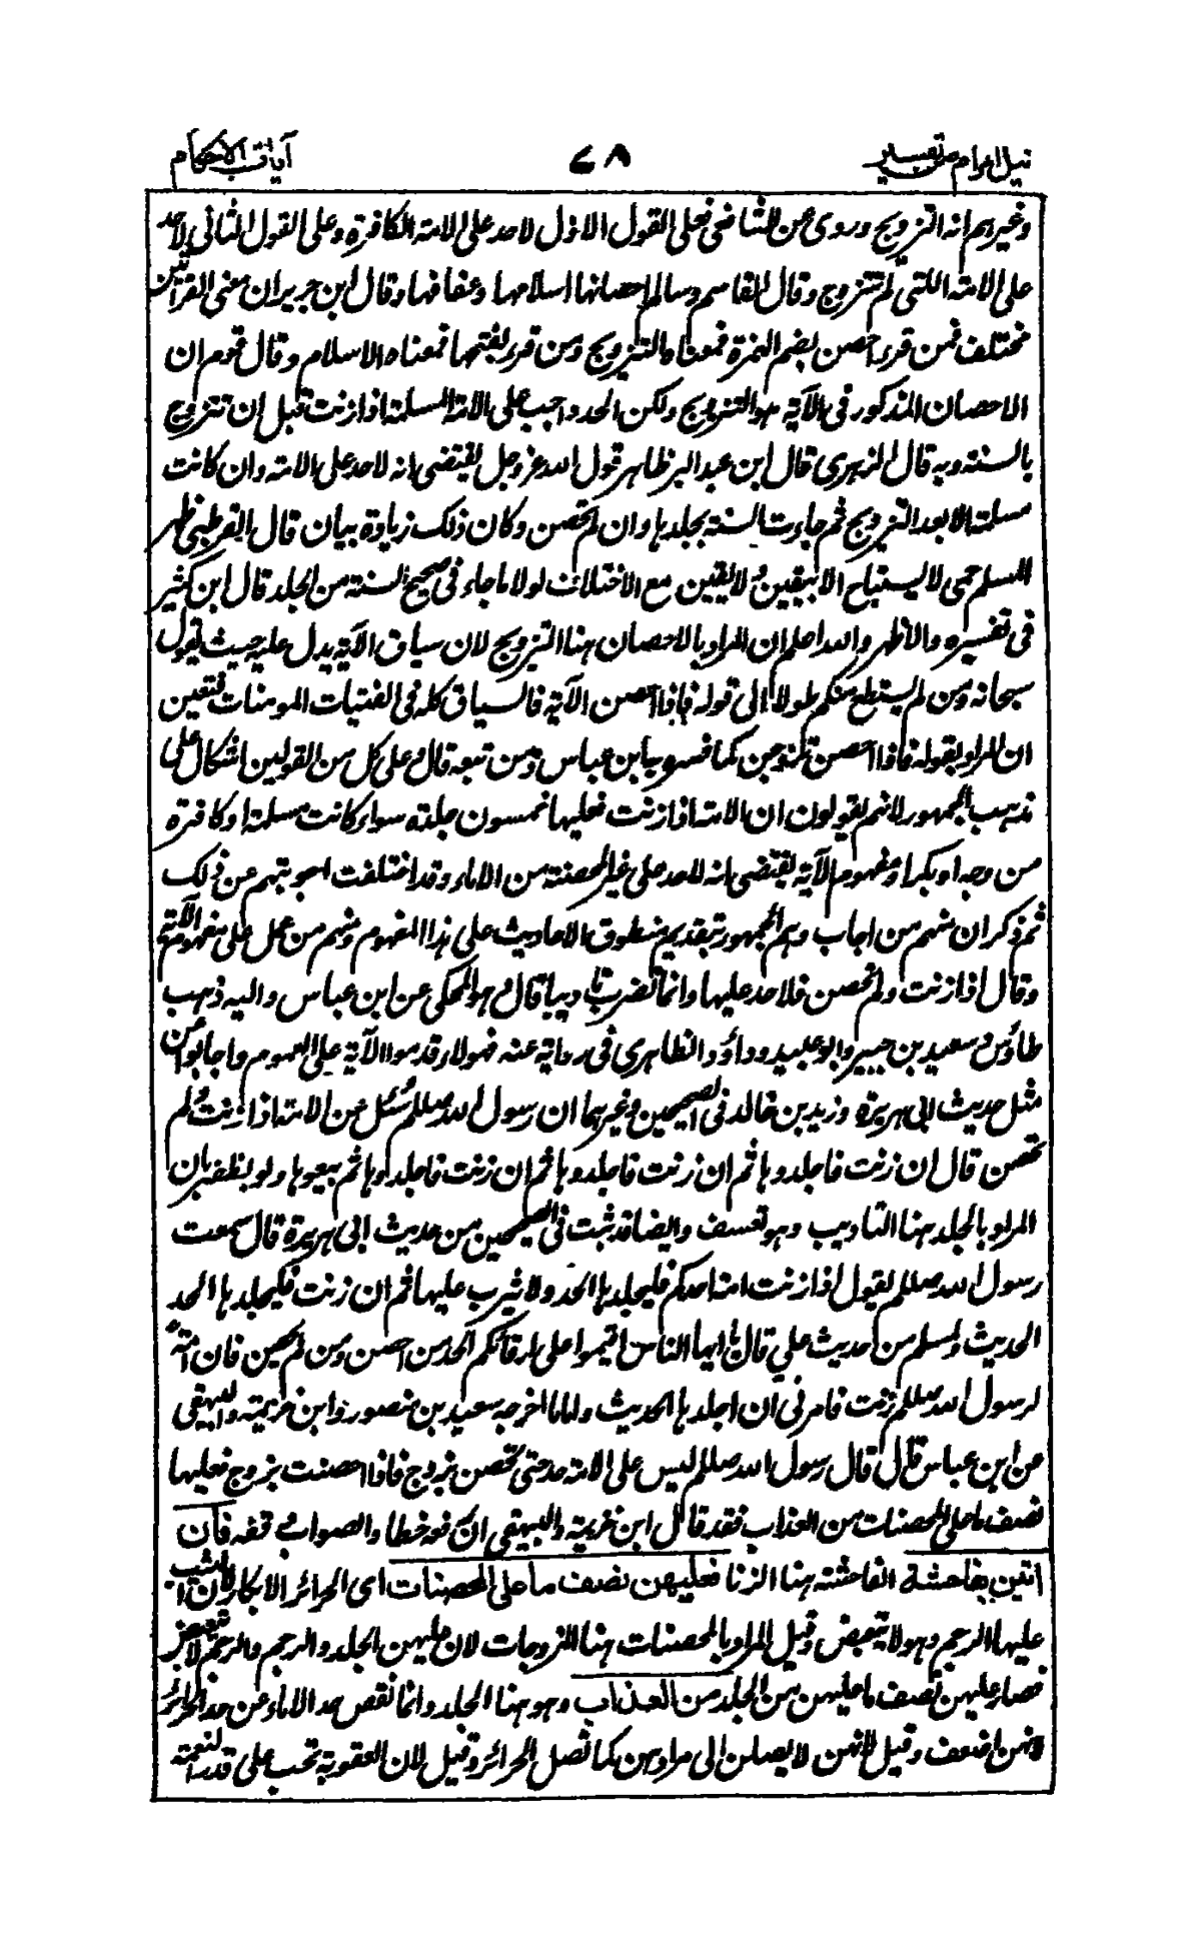 نيل المرام من تفسير ٧٨ آيات الاحكام
وغيرهم انه التزويج وروى عن الشافعى فعلى القول الاول لا حد على الامة الكافرة وعلى القول الثانى لا حد
على الامة اللتى لم تتزوج وقال القاسم وسالم احصانها اسلامها وعفافها وقال ابن جرير ان معنى القراءتين
مختلف فمن قرء احصن بضم الهمزة فمعناه التزويج ومن قرء بفتحها فمعناه الاسلام وقال قوم ان
الاحصان المذكور فى الآية هو التزويج ولكن الحد واجب على الامة المسلمة اذا زنت قبل ان تتزوج
بالسنة وبه قال الزهرى قال ابن عبد البر ظاهر قول الله عز وجل يقتضى انه لا حد على الامة وان كانت
مسلمة الا بعد التزويج ثم جاءت السنة بجلدها وان لم تحصن وكان ذلك زيادة بيان قال القرطبى ظهر
المسلم حمى لا يستباح الا بيقين ولا يقين مع الاختلاف لولا ما جاء فى صحيح السنة من الجلد قال ابن كثير
فى تفسيره والاظهر والله اعلم ان المراد بالاحصان هنا التزويج لان سياق الآية يدل عليه حيث يقول
سبحانه ومن لم يستطع منكم طولا الى قوله فاذا احصن الآية فالسياق كله فى الفتيات المومنات فتعين
ان المراد بقوله فاذا احصن تزوجن كما فسره به ابن عباس ومن تبعه قال وعلى كل من القولين اشكال على
مذهب الجمهور لانهم يقولون ان الامة اذا زنت فعليها خمسون جلدة سواء كانت مسلمة او كافرة
مزوجة او بكرا ومفهوم الآية يقتضى انه لا حد على غير المحصنة من الاماء وقد اختلفت اجوبتهم عن ذلك
ثم ذكر ان منهم من اجاب وهم الجمهور بتقديم منطوق الاحاديث على هذا المفهوم ومنهم من عمل على مفهوم الآية
وقال اذا زنت ولم تحصن فلا حد عليها وانما تضرب تاديبا قال وهو المحكى عن ابن عباس واليه ذهب
طاؤس وسعيد بن جبير وابو عبيد وداؤد الظاهرى فى رواية عنه فهولاء قدموا الآية على العموم واجابوا عن
مثل حديث ابى هريرة وزيد بن خالد فى الصحيحين وغيرهما ان رسول الله صللم سئل عن الامة اذا زنت ولم
تحصن قال ان زنت فاجلدوها ثم ان زنت فاجلدوها ثم ان زنت فاجلدوها ثم بيعوها ولو بظفير بان
المراد بالجلد هنا التاديب وهو تعسف وايضا قد ثبت فى الصحيحين من حديث ابى هريرة قال سمعت
رسول الله صللم يقول اذا زنت امة احدكم فليجلدها الحد ولا يثرب عليها ثم ان زنت فليجلدها الحد
الحديث ولمسلم من حديث على قال يا ايها الناس اقيموا على ارقائكم الحد من احصن ومن لم يحصن فان امة
لرسول الله صللم زنت فامرنى ان اجلدها الحديث واما ما اخرجه سعيد بن منصور وابن خزيمة والبيهقى
عن ابن عباس قال قال رسول الله صللم ليس على الامة حد حتى تحصن بزوج فاذا احصنت بزوج فعليها
نصف ما على المحصنات من العذاب فقد قال ابن خزيمة والبيهقى ان رفعه خطا والصواب وقفه فان
اتين بفاحشة الفاحشة هنا الزنا فعليهن نصف ما على المحصنات اى الحرائر الابكار لان الثيب
عليها الرجم وهو لا يتبعض وقيل المراد بالمحصنات هنا المزوجات لان عليهن الجلد والرجم والرجم لا يتبعض
فصار عليهن نصف ما عليهن من الجلد من العذاب وهو هنا الجلد وانما نقص حد الاماء عن حد الحرائر
لانهن اضعف وقيل لانهن لا يصلن الى مرادهن كما تصل الحرائر وقيل لان العقوبة تجب على قدر النعمة